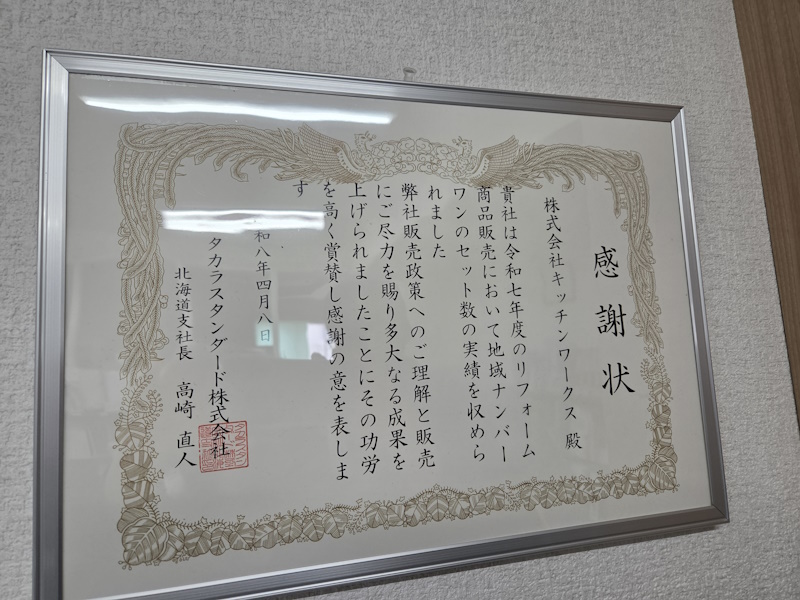 感謝状
株式会社キッチンワークス 殿
貴社は令和七年度のリフォーム
商品販売において地域ナンバー
ワンのセット数の実績を収めら
れました
弊社販売政策へのご理解と販売
にご尽力を賜り多大なる成果を
上げられましたことにその功労
を高く賞賛し感謝の意を表しま
す
和八年四月八日
タカラスタンダード株式会社
北海道支社長 高崎 直人